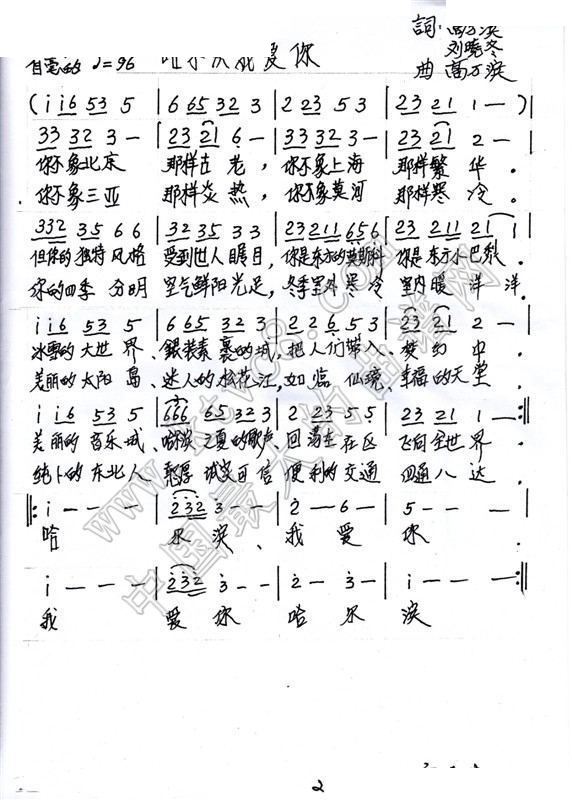 詞：高万滨
刘晓冬
自豪的 ♩=96 哈尔滨我爱你
曲 高万滨
( i i6 53 5 | 6 65 32 3 | 2 23 5 3 | 23 21 1 — ) |
33 32 3 — | 23 21 6 — | 33 32 3 — | 23 21 2 — |
你不象北京 那样古老， 你不象上海 那样繁华。
你不象三亚 那样炎热， 你不象莫河 那样寒冷。
332 35 6 6 | 32 35 3 3 | 23 211 656 6 | 23 211 21 1 |
但你的独特风格 受到世人瞩目， 你是东方的莫斯科 你是东方小巴黎
你的四季 分明 空气鲜阳光足， 冬季室外寒冷 室内暖洋洋。
i i6 53 5 | 6 65 32 3 | 2 2 6 5 3 | 23 21 2 — |
冰雪的大世界、 銀装素裹的城， 把人们带入、 梦幻中。
美丽的太阳岛、 迷人的松花江， 如临仙境、 幸福的天堂。
i i6 53 5 | 666 65 32 3 | 2 23 5 5 | 23 21 1 — :‖
美丽的音乐城、 哈滨之夏的歌声、 回荡在 区 飞向全世界
纯卜的东北人 憨厚 诚实可信 便利的交通 四通八达
‖: i — — — | 232 3 — — | 2 — 6 — | 5 — — — |
哈 尔滨、 我爱 你
i — — — | 232 3 — — | 2 — 3 — | i — — — :‖
我 爱你 哈尔 滨
www.ktvc8.com
中国最大的曲谱网
2